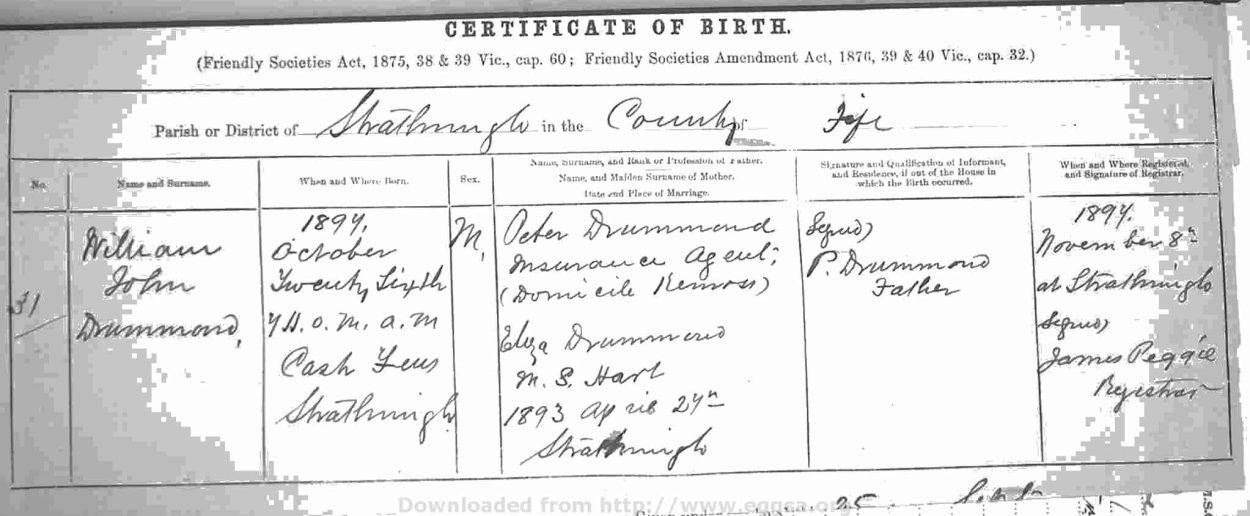 CERTIFICATE OF BIRTH.
(Friendly Societies Act, 1875, 38 & 39 Vic., cap. 60; Friendly Societies Amendment Act, 1876, 39 & 40 Vic., cap. 32.)
Parish or District of Strathmiglo in the County of Fife
No.
Name and Surname.
When and Where Born.
Sex.
Name, Surname, and Rank or Profession of Father.
Name, and Maiden Surname of Mother.
Date and Place of Marriage.
Signature and Qualification of Informant,
and Residence, if out of the House in
which the Birth occurred.
When and Where Registered,
and Signature of Registrar.
31
William
John
Drummond,
1894,
October
Twenty Sixth
4 H. 0. M. a.m
Cash Feus
Strathmiglo
M,
Peter Drummond
Insurance Agent;
(Domicile Kinross)
Eliza Drummond
M. S. Hart
1893 April 27th
Strathmiglo
Signed)
P. Drummond
Father
1894.
November 8th
at Strathmiglo
Signed)
James Peggie
Registrar
Downloaded from http://www.eggsa.org
25